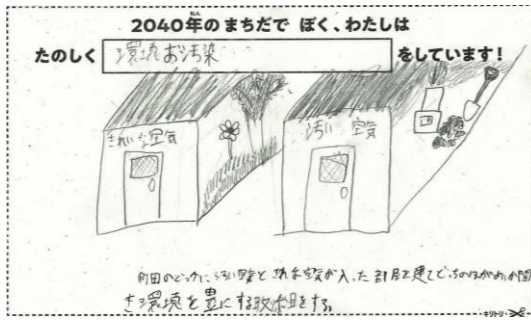 2040年のまちだで ぼく、わたしは
たのしく 環境お汚染 をしています!
きれいな空気
汚い 空気
町田のどっかに汚い空気と きれいな空気が入った部屋を建てどっちのほうが
き環境を豊にする取り組をする。
キリトリ